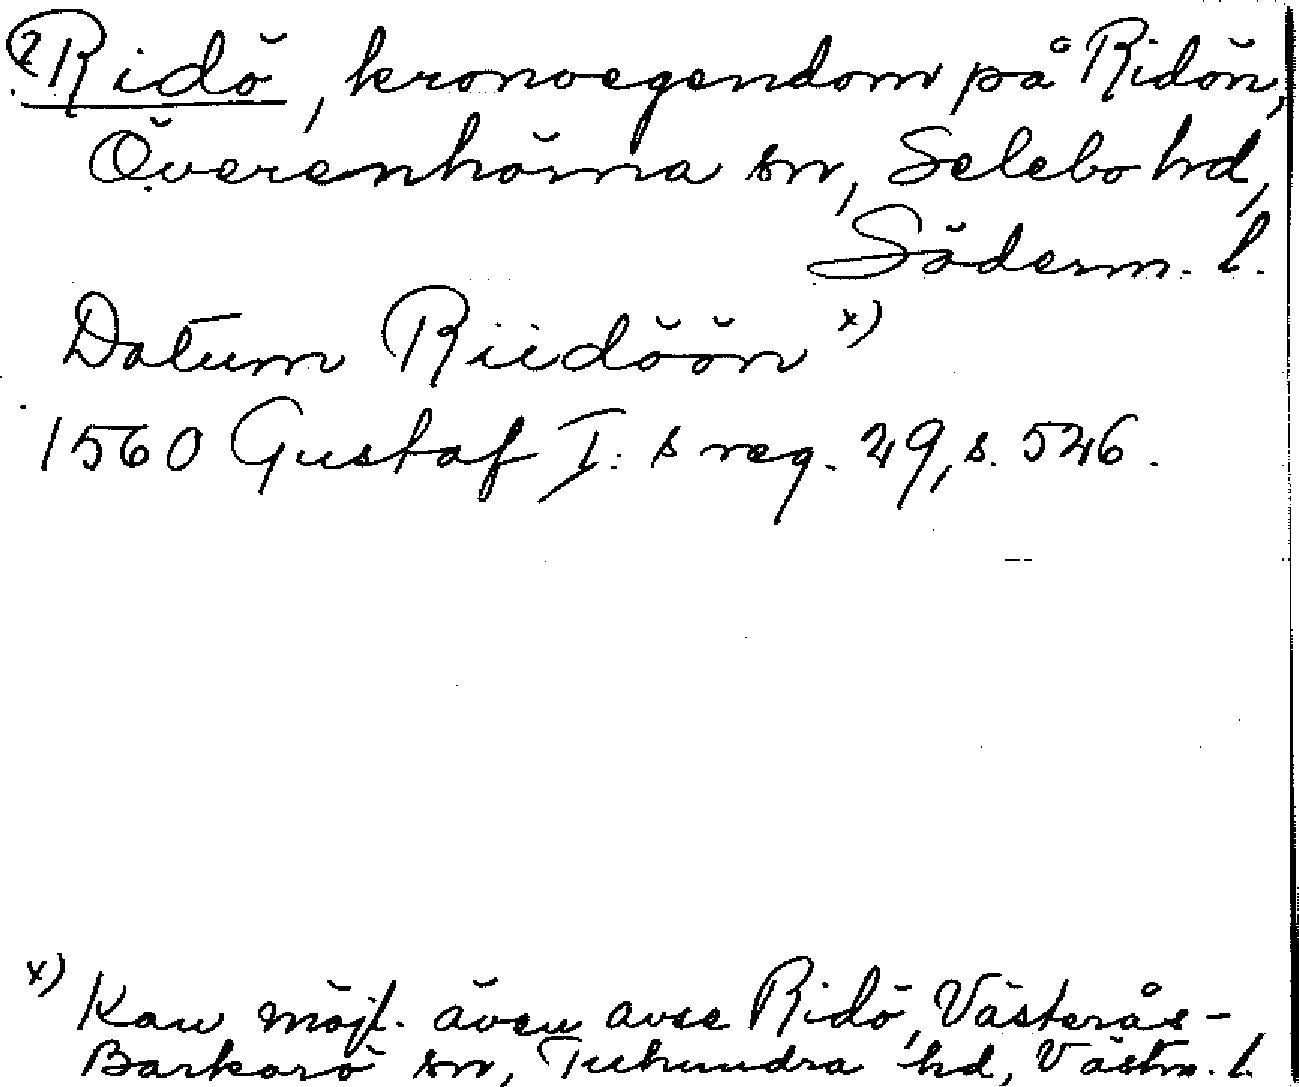 ? Ridö, kronoegendom på Ridön,
Överenhörna sn, Selebo hd,
Söderm. l.
Datum Riidöön x)
1560 Gustaf I:s reg. 29, s. 526.
x) Kan möjl. även avse Ridö, Västerås-
Barkarö sn, Tuhundra hd, Västm. l.